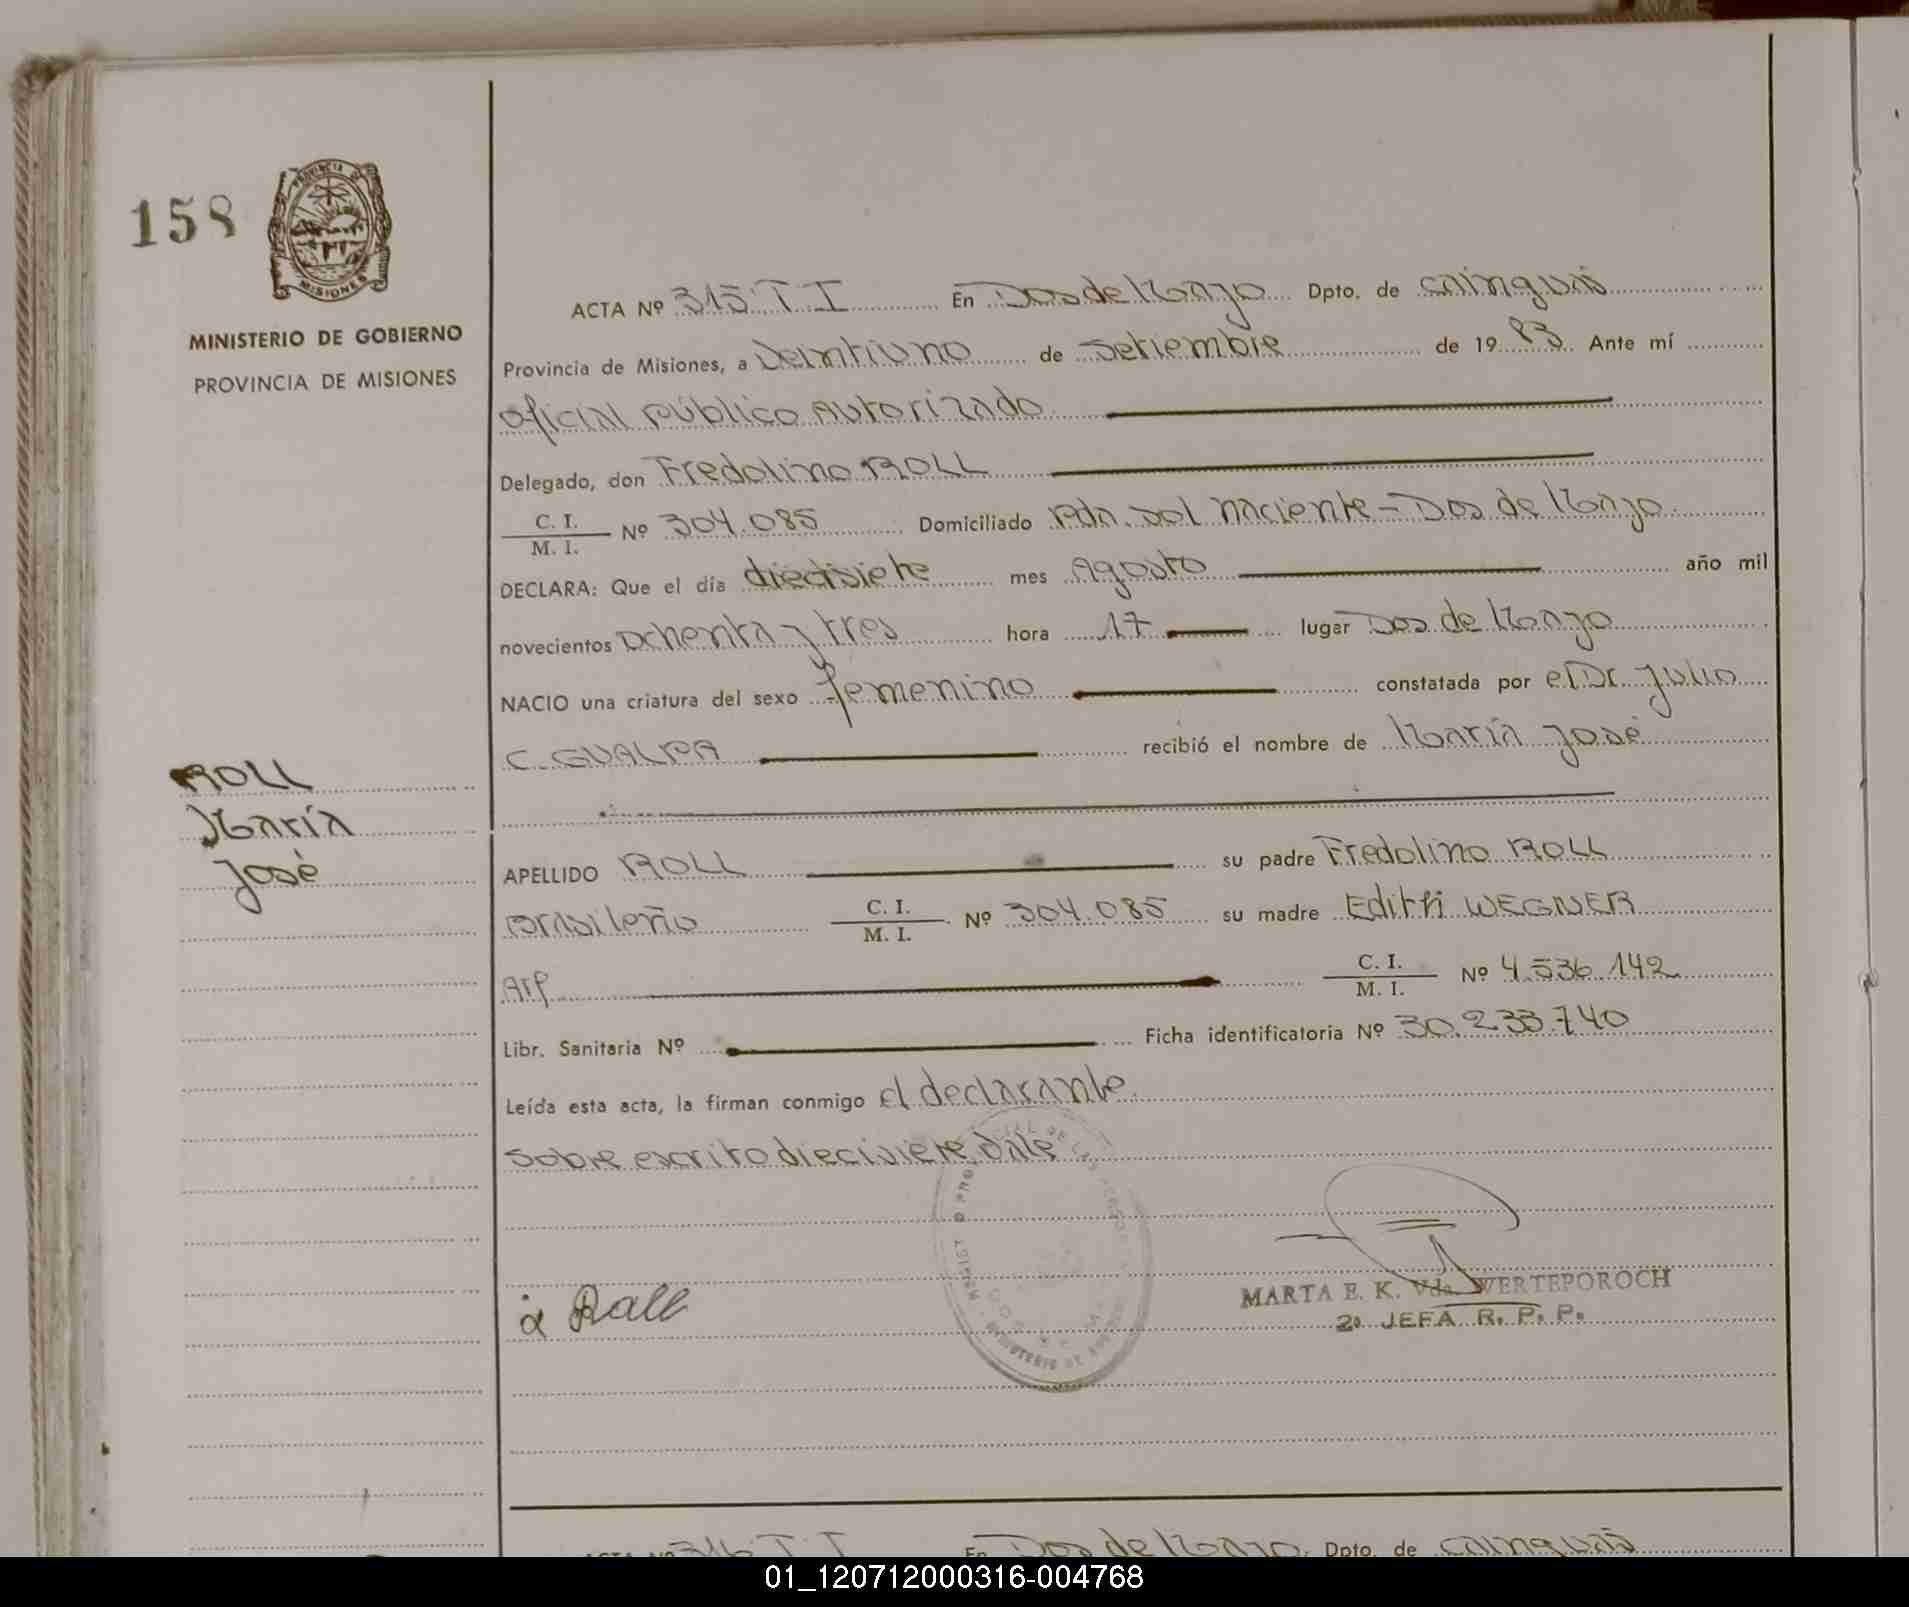 158
PROVINCIA DE
MISIONES
MINISTERIO DE GOBIERNO
PROVINCIA DE MISIONES
ROLL
María
José
ACTA Nº 315. T. I En Dos de Mayo Dpto. de Cainguás
Provincia de Misiones, a Veintiuno de Setiembre de 1983. Ante mí
Oficial Público Autorizado
Delegado, don Fredolino ROLL
C. I.
M. I. Nº 304.085 Domiciliado Pda. Sol Naciente - Dos de Mayo
DECLARA: Que el día diecisiete mes Agosto año mil
novecientos Ochenta y tres hora 17 lugar Dos de Mayo
NACIO una criatura del sexo femenino constatada por el Dr. Julio
C. GUALPA recibió el nombre de María José
APELLIDO ROLL su padre Fredolino ROLL
Brasileño C. I.
M. I. Nº 304.085 su madre Edith WEGNER
Arg. C. I.
M. I. Nº 4.536.142
Libr. Sanitaria Nº Ficha identificatoria Nº 30.233.740
Leída esta acta, la firman conmigo el declarante.
Sobre escrito diecisiete Vale
Roll
MARTA E. K. Vda. WERTEPOROCH
2º JEFA R. P. P.
ACTA Nº 316 T. I En Dos de Mayo. Dpto. de Cainguás
01_120712000316-004768